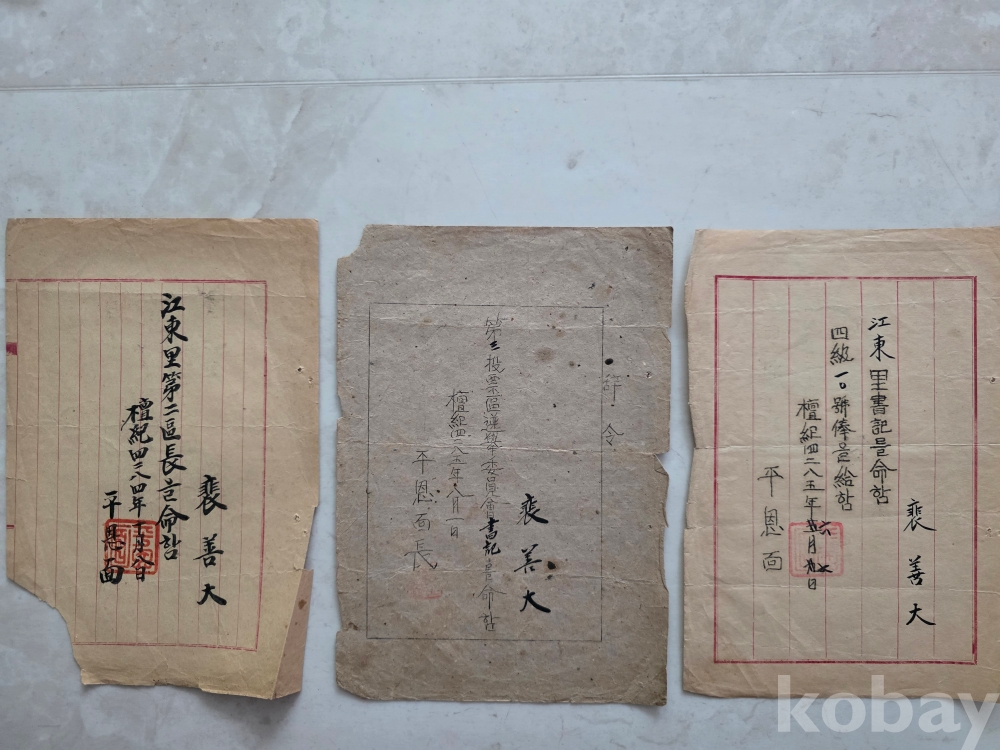 裵善大
江東里第二區長을命함
檀紀四二八四年十月八日
平恩面
辞令
裵善大
第三投票區選擧委員會書記를命함
檀紀四二八五年八月一日
平恩面長
裵善大
江東里書記를命함
四級一〇號俸을給함
檀紀四二八五年六月六日
平恩面
kobay